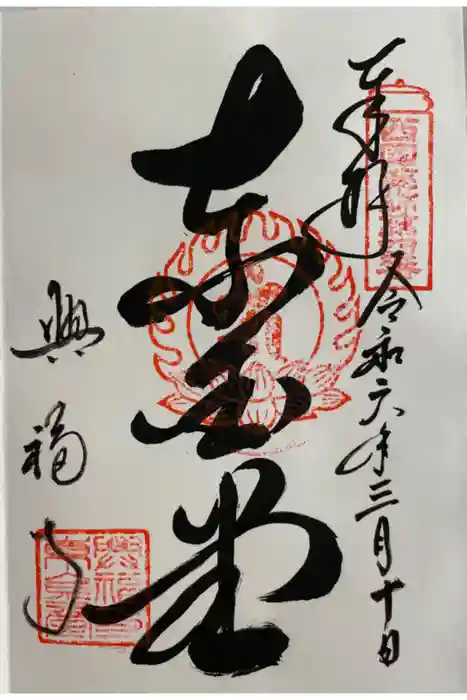 奉拝 令和六年三月十日
東金堂
興福寺